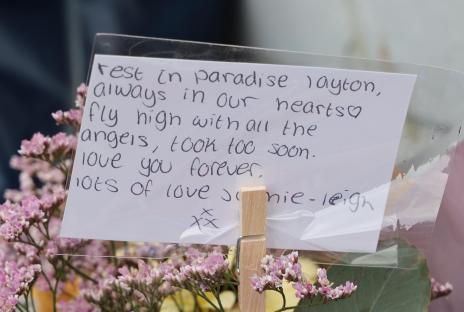 rest in paradise Jayton,
always in our hearts♡
fly high with all the
angels, took too soon.
love you forever.
lots of love -leigh
xxx